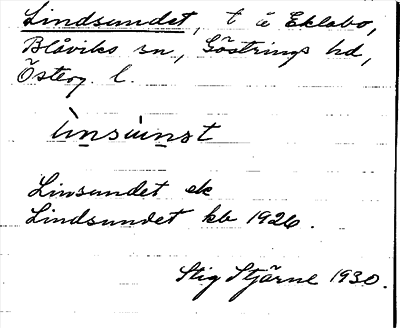 Lindsundet, t å Eklabo,
Blåviks sn., Göstrings hd,
Österg. l.
lìnsún̠st
Linsundet ek
Lindsundet kb 1926.
Stig Stjärne 1930.